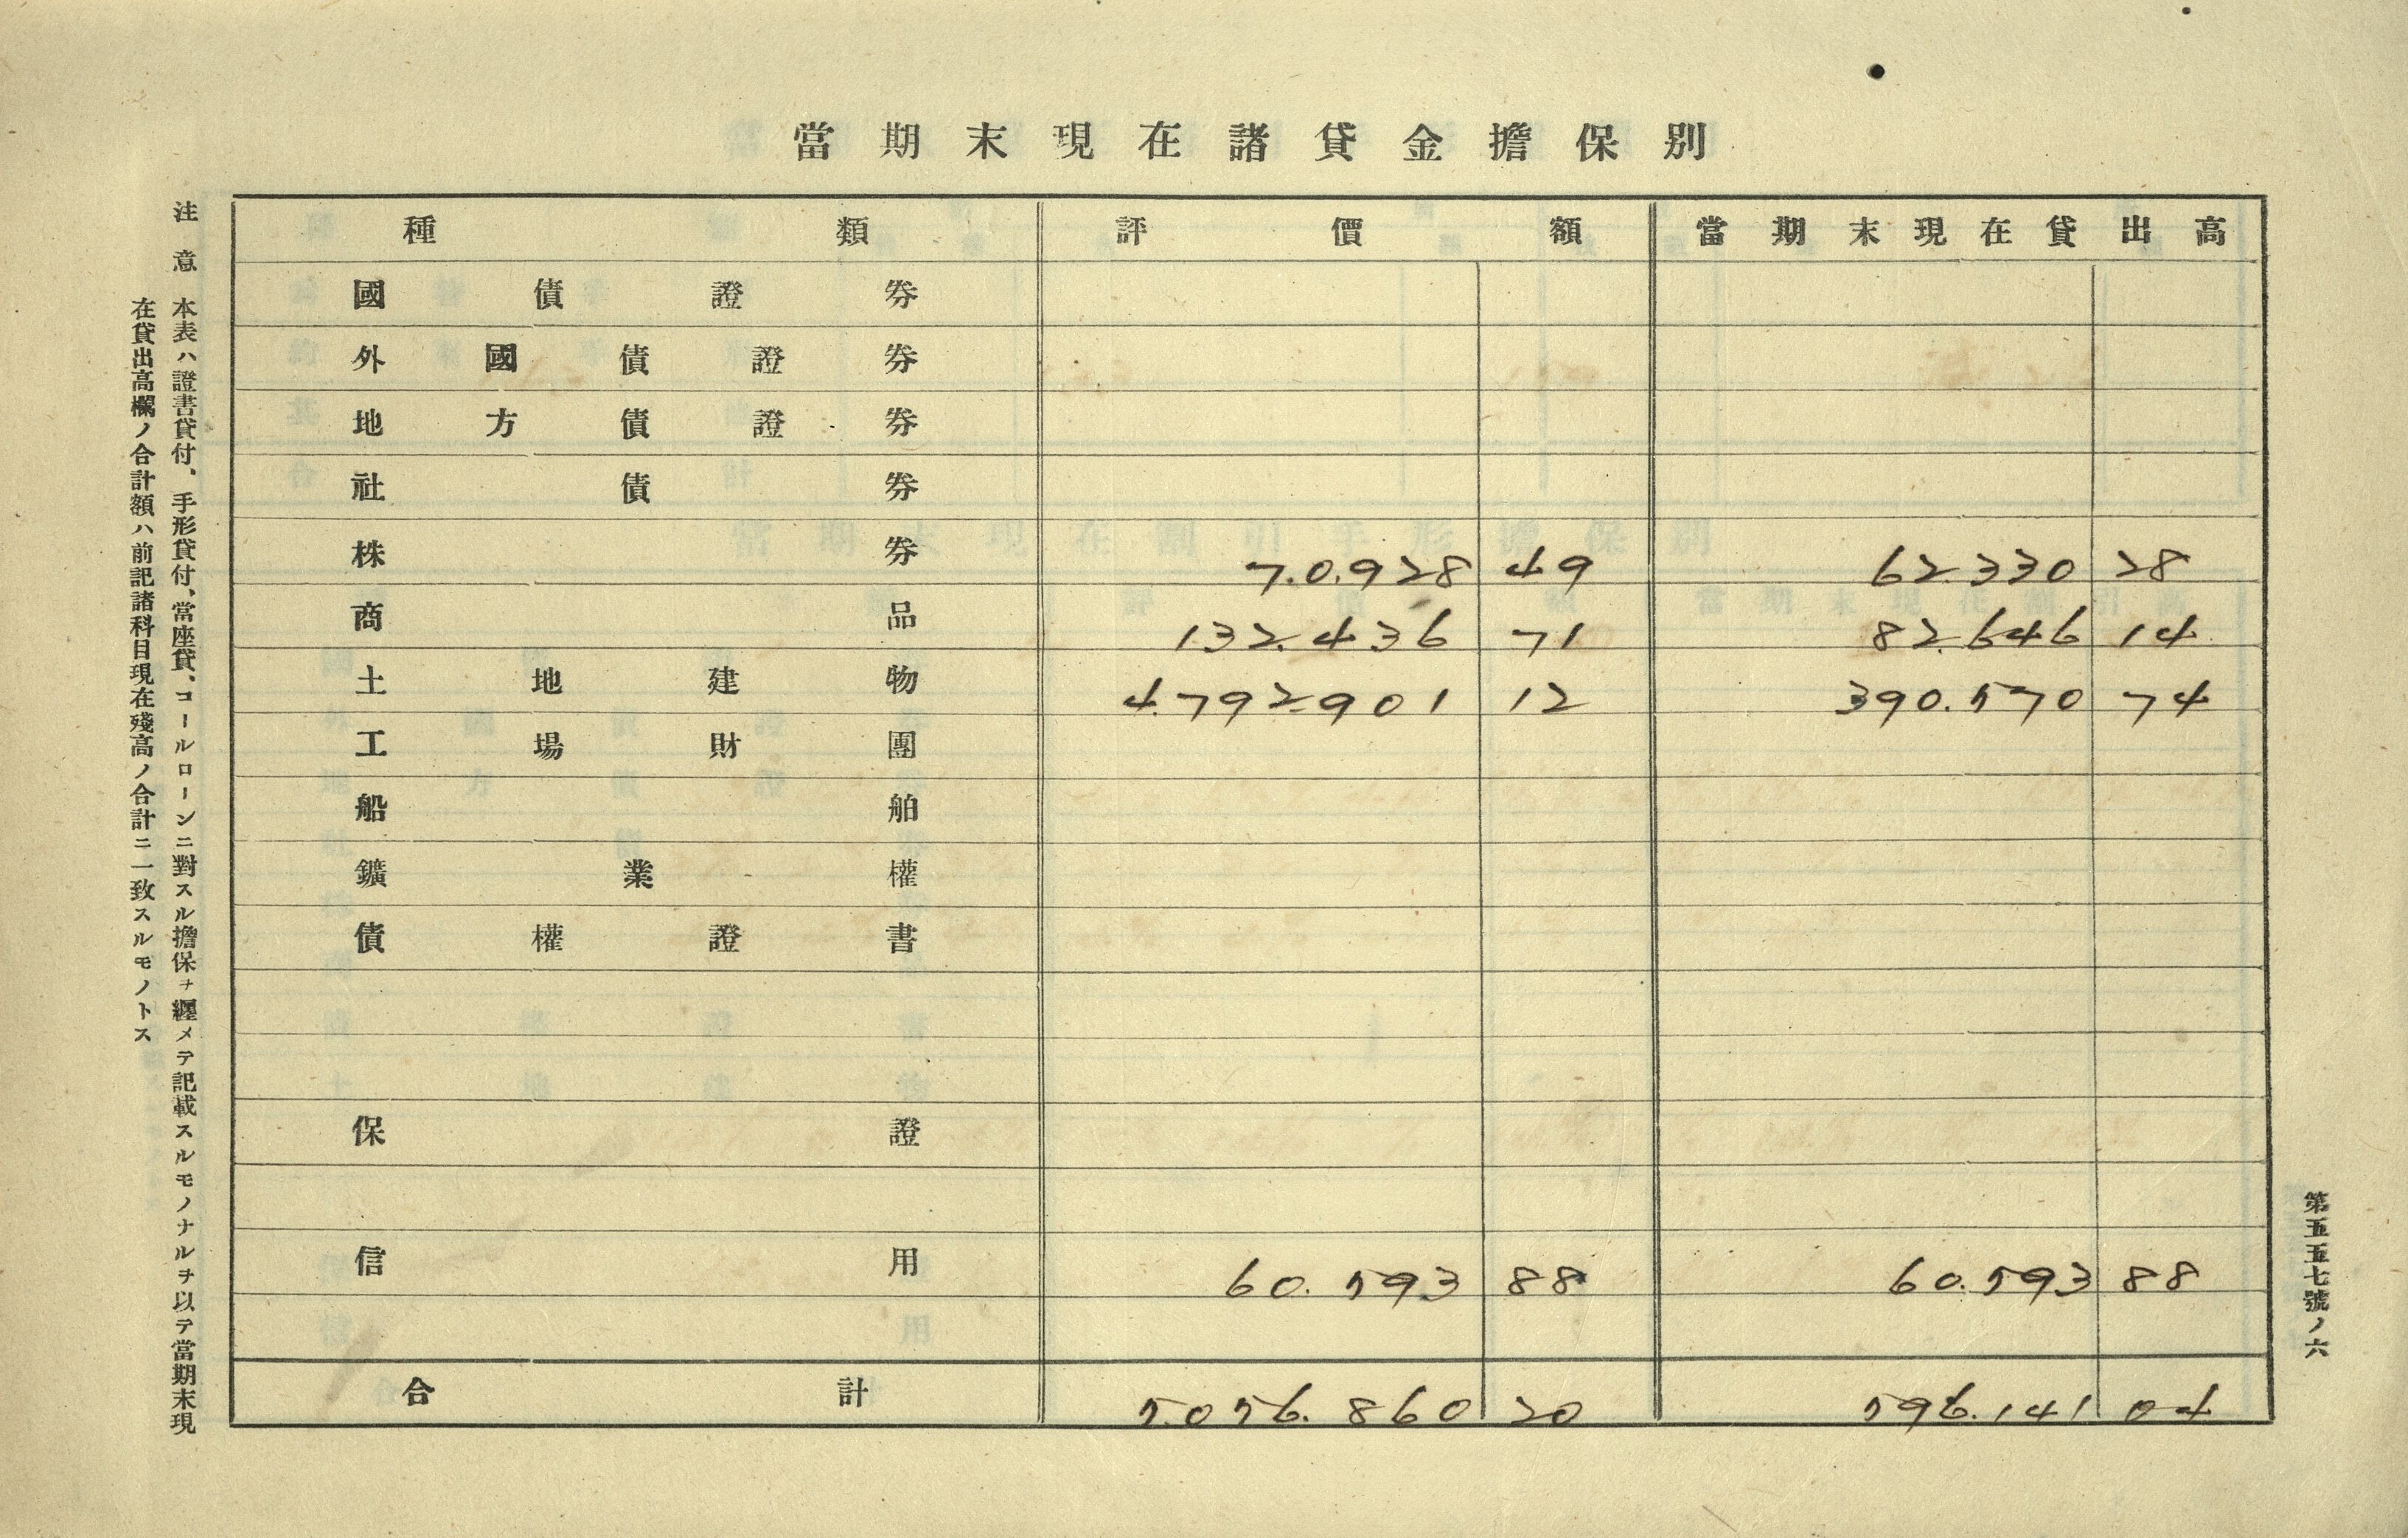 當期末現在諸貸金擔保別
種類 評價額 當期末現在貸出高
國債證券
外國債證券
地方債證券
社債券
株券 7.0.928 49 62.330 28
商品 132.436 71 82.646 14
土地建物 4.792.901 12 390.570 74
工場財團
船舶
鑛業權
債權證書
保證
信用 60.593 88 60.593 88
合計 5.056.860 20 596.141 04
注意 本表ハ證書貸付、手形貸付、當座貸、コールローンニ對スル擔保ヲ纒メテ記載スルモノナルヲ以テ當期末現
在貸出高欄ノ合計額ハ前記諸科目現在殘高ノ合計ニ一致スルモノトス
第五五七號ノ六